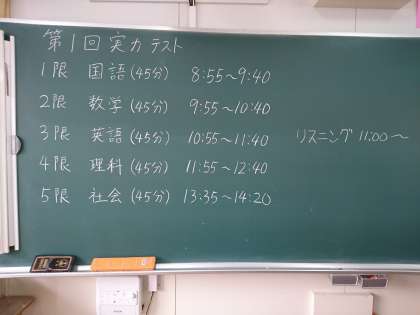 第1回実力テスト
1限 国語(45分) 8:55〜9:40
2限 数学(45分) 9:55〜10:40
3限 英語(45分) 10:55〜11:40 リスニング 11:00〜
4限 理科(45分) 11:55〜12:40
5限 社会(45分) 13:35〜14:20